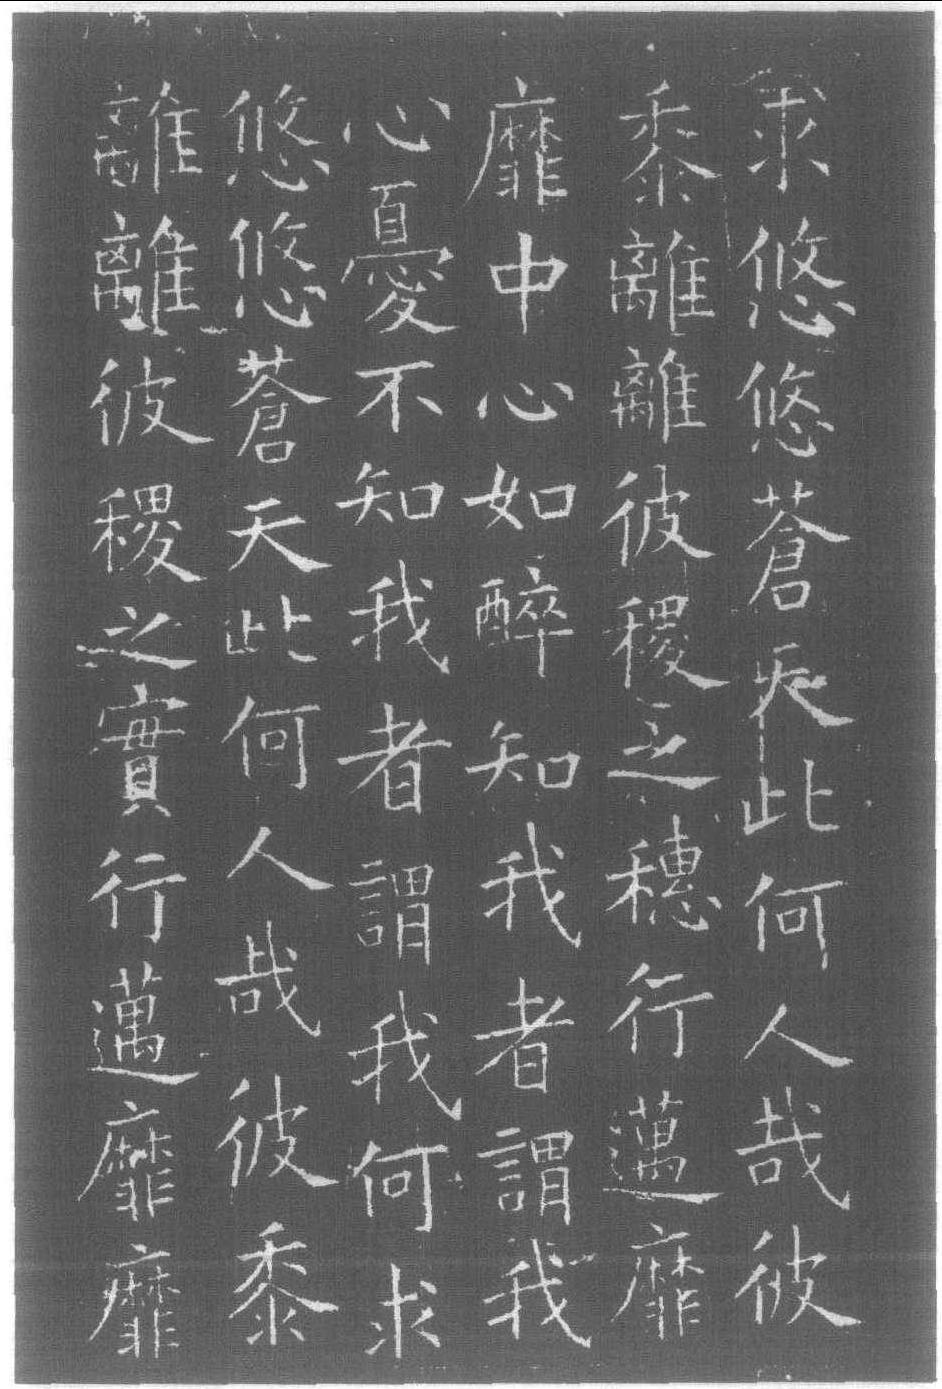 求悠悠蒼天此何人哉彼
黍離離彼稷之穗行邁靡
靡中心如醉知我者謂我
心憂不知我者謂我何求
悠悠蒼天此何人哉彼黍
離離彼稷之實行邁靡靡